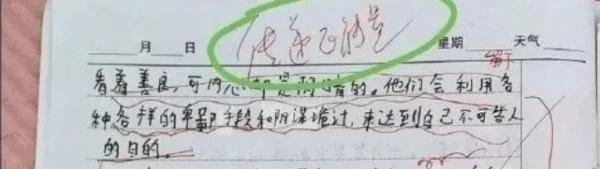 传递正能量
月 日 星期 天气
看着善良,可内心都是阴暗的。他们会利用各
种各样的卑鄙手段和阴谋诡计,来达到自己不可告人
的目的。